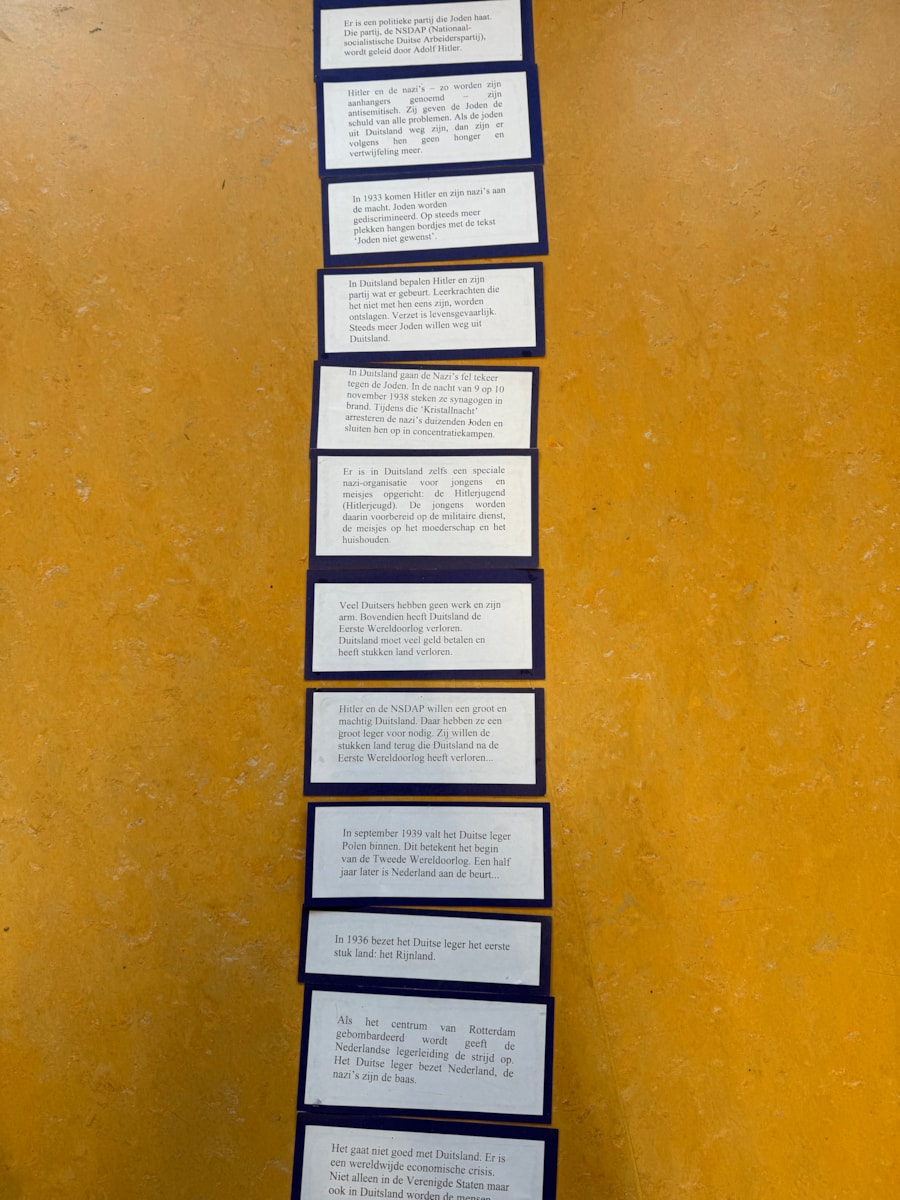 Er is een politieke partij die Joden haat.
Die partij, de NSDAP (Nationaal-
socialistische Duitse Arbeiderspartij),
wordt geleid door Adolf Hitler.
Hitler en de nazi's – zo worden zijn
aanhangers genoemd – zijn
antisemitisch. Zij geven de Joden de
schuld van alle problemen. Als de joden
uit Duitsland weg zijn, dan zijn er
volgens hen geen honger en
vertwijfeling meer.
In 1933 komen Hitler en zijn nazi's aan
de macht. Joden worden
gediscrimineerd. Op steeds meer
plekken hangen bordjes met de tekst
'Joden niet gewenst'.
In Duitsland bepalen Hitler en zijn
partij wat er gebeurt. Leerkrachten die
het niet met hen eens zijn, worden
ontslagen. Verzet is levensgevaarlijk.
Steeds meer Joden willen weg uit
Duitsland.
In Duitsland gaan de Nazi's fel tekeer
tegen de Joden. In de nacht van 9 op 10
november 1938 steken ze synagogen in
brand. Tijdens die 'Kristallnacht'
arresteren de nazi's duizenden Joden en
sluiten hen op in concentratiekampen.
Er is in Duitsland zelfs een speciale
nazi-organisatie voor jongens en
meisjes opgericht: de Hitlerjugend
(Hitlerjeugd). De jongens worden
daarin voorbereid op de militaire dienst,
de meisjes op het moederschap en het
huishouden.
Veel Duitsers hebben geen werk en zijn
arm. Bovendien heeft Duitsland de
Eerste Wereldoorlog verloren.
Duitsland moet veel geld betalen en
heeft stukken land verloren.
Hitler en de NSDAP willen een groot en
machtig Duitsland. Daar hebben ze een
groot leger voor nodig. Zij willen de
stukken land terug die Duitsland na de
Eerste Wereldoorlog heeft verloren...
In september 1939 valt het Duitse leger
Polen binnen. Dit betekent het begin
van de Tweede Wereldoorlog. Een half
jaar later is Nederland aan de beurt...
In 1936 bezet het Duitse leger het eerste
stuk land: het Rijnland.
Als het centrum van Rotterdam
gebombardeerd wordt geeft de
Nederlandse legerleiding de strijd op.
Het Duitse leger bezet Nederland, de
nazi's zijn de baas.
Het gaat niet goed met Duitsland. Er is
een wereldwijde economische crisis.
Niet alleen in de Verenigde Staten maar
ook in Duitsland worden de mensen